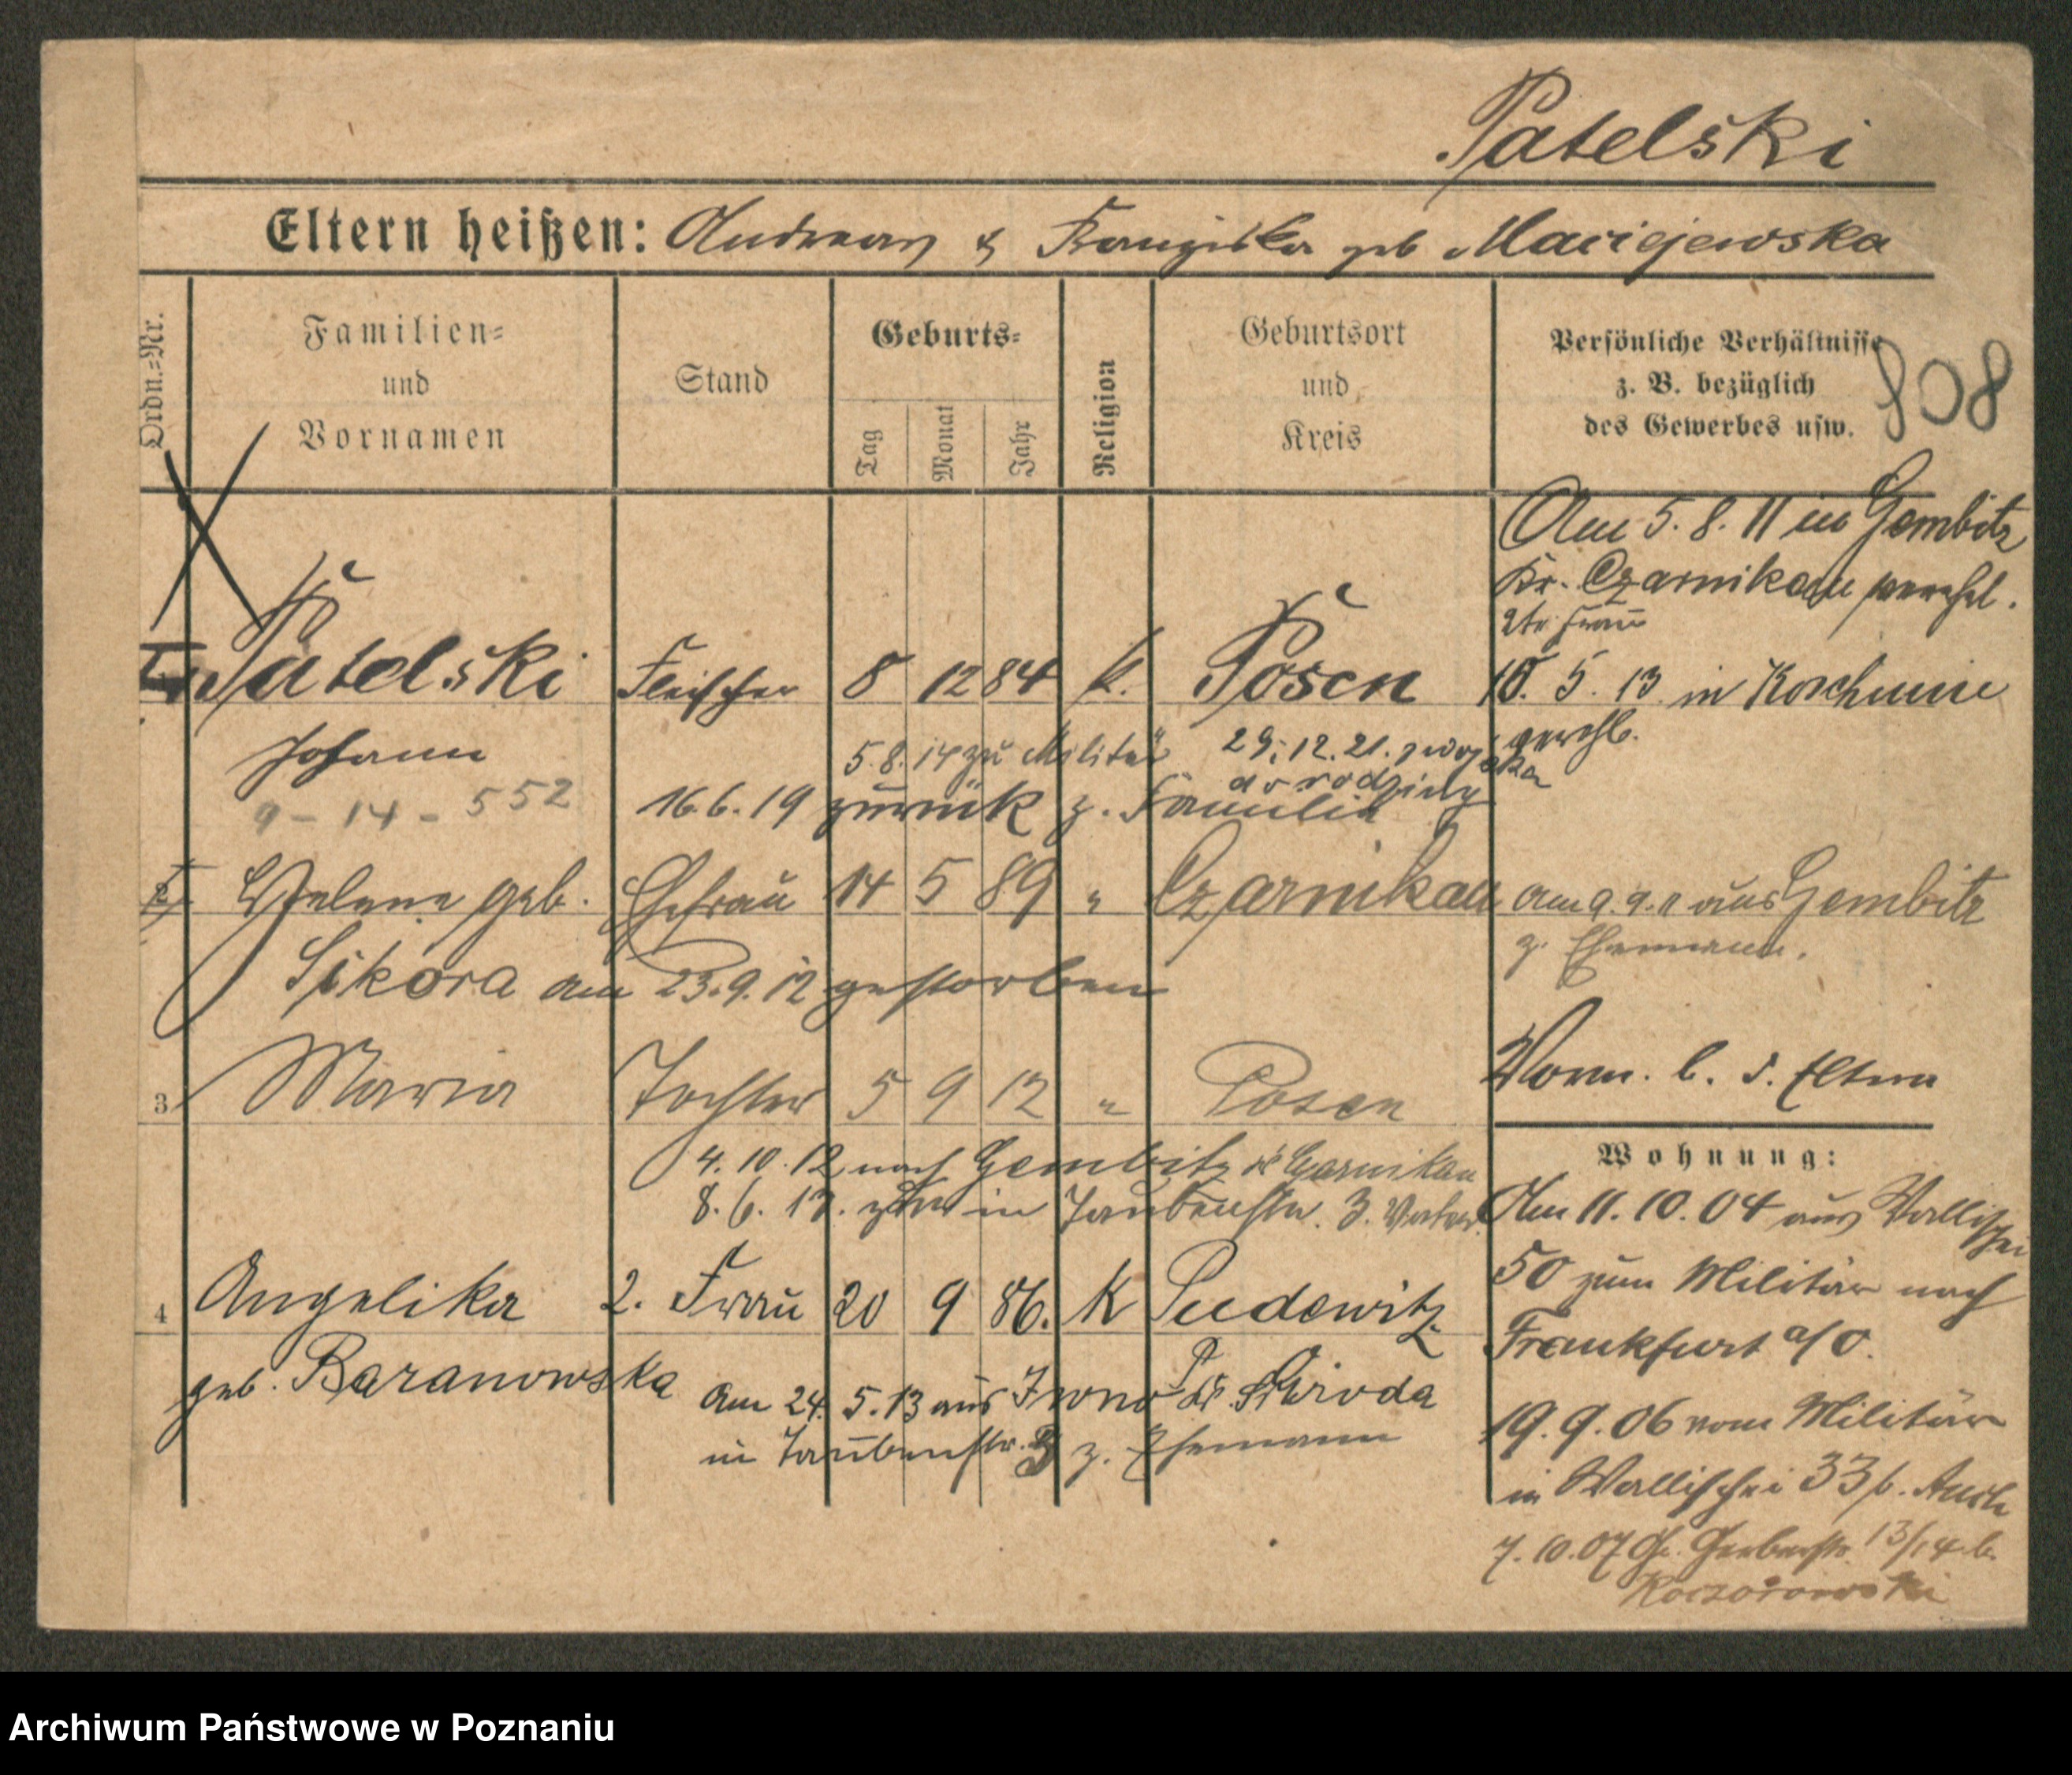 Patelski
Eltern heißen: Andreas & Franziska geb Maciejewska
Ordn.-Nr.
Familien- und Vornamen
Stand
Geburts-
Tag
Monat
Jahr
Religion
Geburtsort und Kreis
Persönliche Verhältnisse
z. B. bezüglich
des Gewerbes usw.
808
Am 5. 8. 11 in Gembitz
Kr. Czarnikau verehel.
2te Frau
Patelski Fleischer 8 12 84 k. Posen
10. 5. 13 in Koschmin
verehl.
Johann
5. 8. 14 zu Militär
29. 12. 21.
do rodziny
9 - 14 - 552
16. 6. 19 zurück z. Familie
2 Helene geb. Ehefrau 14 5 89 " Czarnikau
am 9. 9. 11 aus Gembitz
z. Ehemann.
Sikora am 23. 9. 12 gestorben
3 Maria Tochter 5 9 12 " Posen
Vorm. b. d. Eltern
4. 10. 12 nach Gembitz Kr Czarnikau
8. 6. 13. in Taubenstr. 3. Vater
Wohnung:
Am 11. 10. 04 aus Wallischei
50 zum Militär nach
Frankfurt a/O.
4 Angelika 2. Frau 20 9 86. K Pudewitz
geb. Baranowska
Am 24. 5. 13 aus Iwno Kr. Schroda
in Taubenstr. 3 z. Ehemann
19. 9. 06 vom Militär
in Wallischei 33 b.
7. 10. 07 Gr. Gerberstr. 13/14 b.
Koczorowski
Archiwum Państwowe w Poznaniu